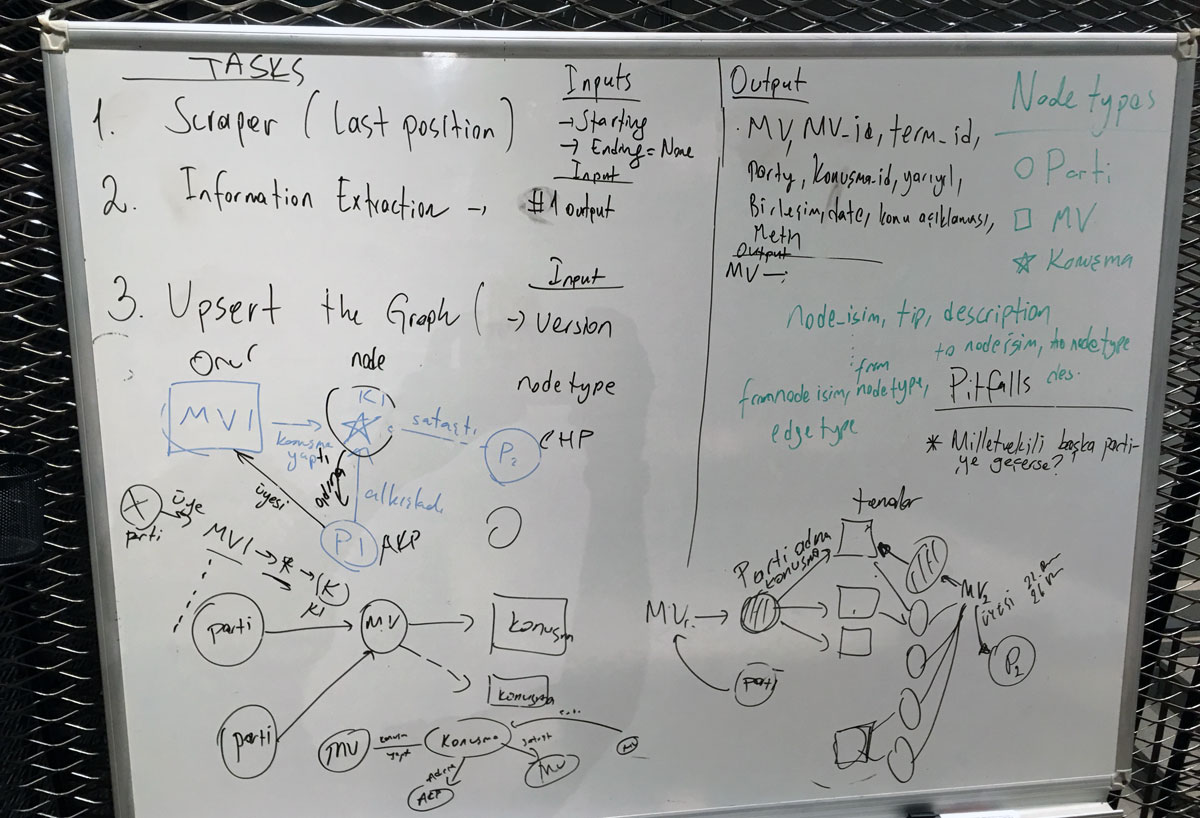 TASKS
1. Scraper (last position)
Inputs
→ Starting
→ Ending = None
2. Information Extraction →
Input
#1 output
3. Upsert the Graph (
Input
→ Version
node type
Output
MV, MV_id, term_id,
party, Konuşma-id, yarıyıl,
Birleşim, date, konu açıklaması,
Metin
Output
MV →
Node types
Parti
MV
Konuşma
node_isim, tip, description
to node isim, to nodetype
from
fromnode isim, nodetype,
des.
edge type
Pitfalls
* Milletvekili başka parti-
ye geçerse?
node
MV1
konuşma
yaptı
K1
sataştı
P2
CHP
üyesi
adına
alkışladı
P1
AKP
X
parti
üye
MV1 → * → (K)
K1
parti
MV
Konuşma
Konuşma
parti
MV
konuşma
yaptı
Konuşma
sataştı
MV
MV
adına
AKP
Parti adına
konuşma
MV1 →
parti
MV2
üyesi
P2